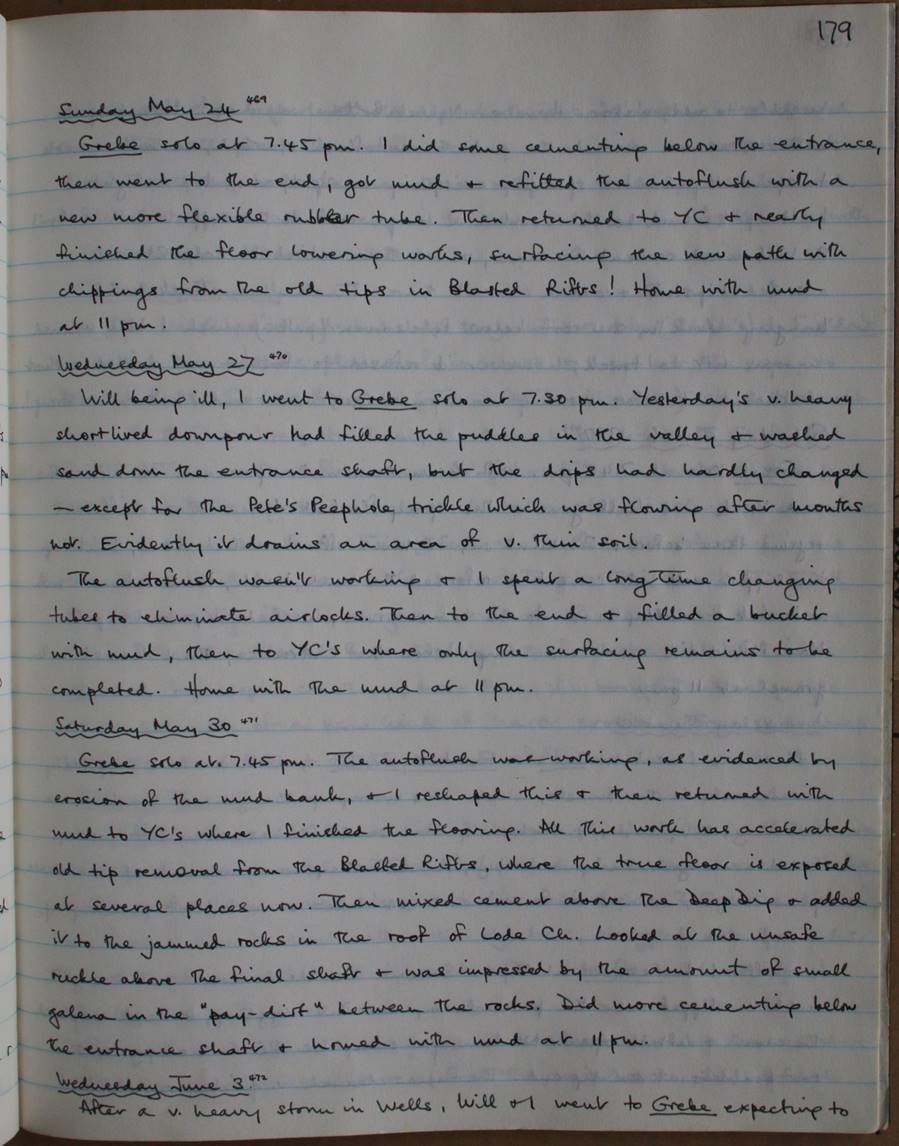 179
Sunday May 24 469
Grebe solo at 7.45 pm. I did some cementing below the entrance,
then went to the end, got mud & refitted the autoflush with a
new more flexible rubber tube. Then returned to YC & nearly
finished the floor lowering works, surfacing the new path with
chippings from the old tips in Blasted Rifts! Home with mud
at 11 pm.
Wednesday May 27 470
Will being ill, I went to Grebe solo at 7.30 pm. Yesterday's v. heavy
shortlived downpour had filled the puddles in the valley & washed
sand down the entrance shaft, but the drips had hardly changed
— except for the Pete's Peephole trickle which was flowing after months
not. Evidently it drains an area of v. thin soil.
The autoflush wasn't working & I spent a long time changing
tubes to eliminate airlocks. Then to the end & filled a bucket
with mud, then to YC's where only the surfacing remains to be
completed. Home with the mud at 11 pm.
Saturday May 30 471
Grebe solo at 7.45 pm. The autoflush was working, as evidenced by
erosion of the mud bank, & I reshaped this & then returned with
mud to YC's where I finished the flooring. All this work has accelerated
old tip removal from the Blasted Rifts, where the true floor is exposed
at several places now. Then mixed cement above the Deep Dig & added
it to the jammed rocks in the roof of Lode Ch. Looked at the unsafe
ruckle above the final shaft & was impressed by the amount of small
galena in the "pay-dirt" between the rocks. Did more cementing below
the entrance shaft & homed with mud at 11 pm.
Wednesday June 3 472
After a v. heavy storm in Wells, Will & I went to Grebe expecting to